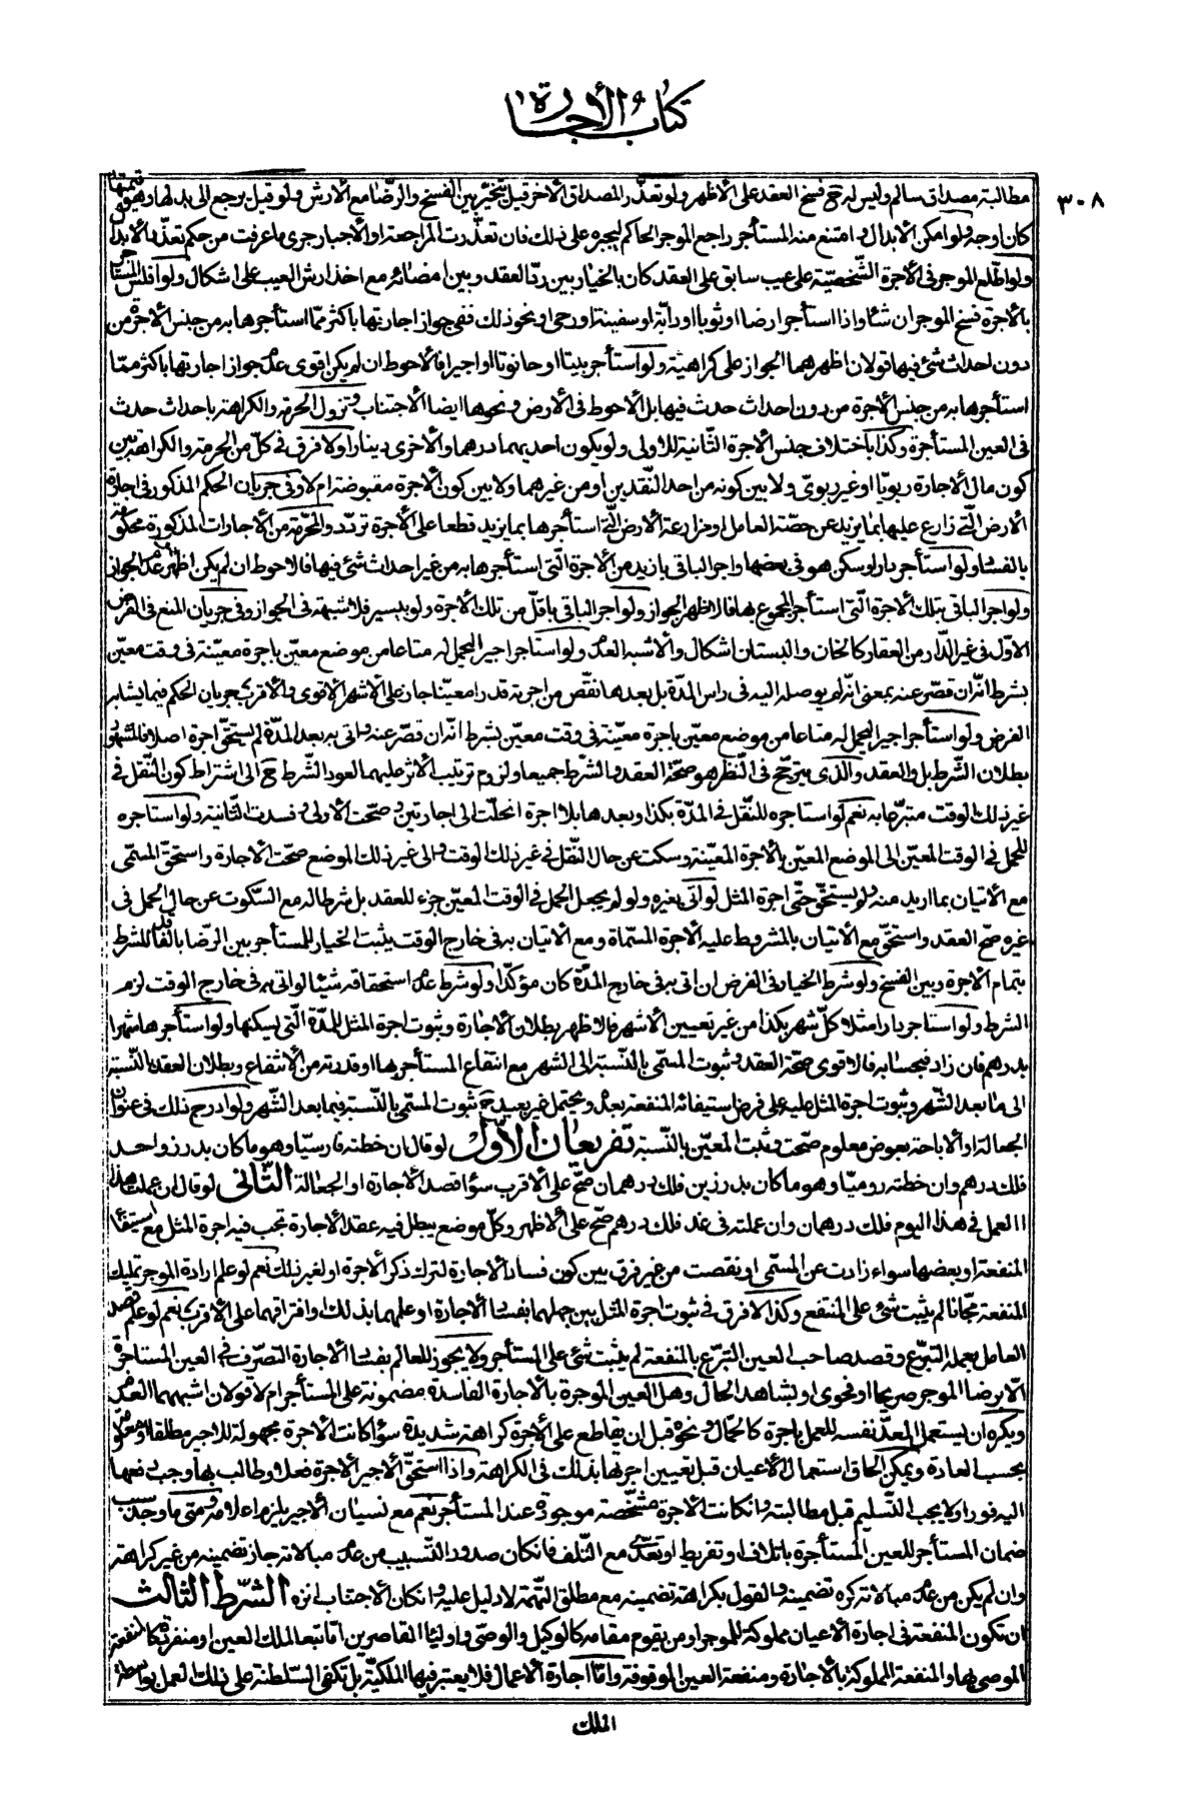 كتاب الأجارة
٣٠٨
مطالبة مصداق سالم وليس له ح فسخ العقد على الأظهر ولو تعذّر المصداق الأخر قيل يتخيّر بين الفسخ والرّضا مع الأرش ولو قيل يرجع الى بدلها وهو قيمتها
كان اوجه ولو امكن الأبدال وامتنع منه المستأجر راجع الموجر الحاكم ليجبره على ذلك فان تعذّرت المراجعة او الأجبار جرى ما عرفت من حكم تعذّر الأبدال
ولو اطّلع الموجر فى الأجرة الشّخصيّة على عيب سابق على العقد كان بالخيار بين ردّ العقد وبين امضائه مع اخذ ارش العيب على اشكال ولو افلس المستأجر
بالأجرة فسخ الموجر ان شاء واذا استأجر ارضا او ثوبا او دابّة او سفينة او رحى او نحو ذلك ففى جواز اجارتها باكثر ممّا استأجرها به من جنس الأجرة من
دون احداث شئ فيها قولان اظهرهما الجواز على كراهيّة ولو استأجر بيتا او حانوتا او اجيرا فالأحوط ان لم يكن اقوى عدم جواز اجارتها باكثر ممّا
استأجرها به من جنس الأجرة من دون احداث حدث فيها بل الأحوط فى الأرض ونحوها ايضا الأجتناب وتزول الحرمة والكراهة باحداث حدث
فى العين المستأجرة وكذا باختلاف جنس الأجرة الثّانية للاولى ولو بكون احديهما درهما والأخرى دينارا ولا فرق فى كلّ من الحرمة والكراهة بين
كون مال الأجارة ربويّا او غير ربوىّ ولا بين كونه من احد النّقدين او من غيرهما ولا بين كون الأجرة مقبوضة ام لا وفى جريان الحكم المذكور فى اجارة
الأرض الّتى زارع عليها بما يزيد عن حصّة العامل او مزارعة الأرض الّتى استأجرها بما يزيد قطعا على الأجرة تردّد والحرمة من الأجارات المذكورة محكوم
بالفساد ولو استأجر دارا وسكن هو فى بعضها واجر الباقى بازيد من الأجرة الّتى استأجرها به من غير احداث شئ فيها فالأحوط ان لم يكن اظهر عدم الجواز
ولو اجر الباقى بتلك الأجرة الّتى استأجر المجموع بها فالأظهر الجواز ولو اجر الباقى باقلّ من تلك الأجرة ولو بيسير فلا شبهة فى الجواز وفى جريان المنع فى الفرض
الأوّل فى غير الدّار من العقار كالخان والبستان اشكال والأشبه العدم ولو استأجر اجيرا ليحمل له متاعا من موضع معيّن باجرة معيّنة فى وقت معيّن
بشرط انّه ان قصّر عنه بمعنى انّه لم يوصله اليه فى راس المدّة بل بعدها نقّص من اجرته قدرا معيّنا جاز على الأشهر الأقوى والأقرب جريان الحكم فيما يشابه
الفرض ولو استأجر اجيرا ليحمل له متاعا من موضع معيّن باجرة معيّنة فى وقت معيّن بشرط انّه ان قصّر عنه واتى به بعد المدّة لم يستحقّ اجرة اصلا فالمشهور
بطلان الشّرط بل والعقد والّذى يترجّح فى النّظر هو صحّة العقد والشّرط جميعا ولزوم ترتيب الأثر عليهما لعود الشّرط ح الى اشتراط كون النّقل فى
غير ذلك الوقت متبرّعا به نعم لو استاجره للنّقل فى المدّة بكذا وبعدها بلا اجرة انحلّت الى اجارتين وصحّت الأولى وفسدت الثّانية ولو استاجره
للحمل فى الوقت المعيّن الى الموضع المعيّن بالأجرة المعيّنة وسكت عن حال النّقل فى غير ذلك الوقت والى غير ذلك الموضع صحّت الأجارة واستحقّ المسمّى
مع الأتيان بما اريد منه ولم يستحقّ حتّى اجرة المثل لو اتى بغيره ولو لم يجعل الحمل فى الوقت المعيّن جزء للعقد بل شرطا له مع السّكوت عن حال الحمل فى
غيره صحّ العقد واستحقّ مع الأتيان بالمشروط عليه الأجرة المسمّاة ومع الأتيان به فى خارج الوقت يثبت الخيار للمستأجر بين الرّضا بالفاقد للشرط
بتمام الأجرة وبين الفسخ ولو شرط الخيار فى الفرض ان اتى به فى خارج المدّة كان مؤكّدا ولو شرط عدم استحقاقه شيئا لو اتى به فى خارج الوقت لزم
الشرط ولو استاجر دارا مثلا كلّ شهر بكذا من غير تعيين الأشهر فالأظهر بطلان الأجارة وثبوت اجرة المثل للمدّة الّتى يسكنها ولو استأجرها شهرا
بدرهم فان زاد فبحسابه فالأقوى صحّة العقد وثبوت المسمّى بالنّسبة الى الشهر مع انتفاع المستأجر بها او قدرته من الأنتفاع وبطلان العقد بالنّسبة
الى ما بعد الشّهر وثبوت اجرة المثل عليه على فرض استيفائه المنفعة بعده ويحتمل غير بعيد ح ثبوت المسمّى بالنّسبة فيما بعد الشّهر ولو ادرج ذلك فى عنوان
الجعالة او الأباحة بعوض معلوم صحّت وثبت المعيّن بالنّسبة تفريعان الأوّل لو قال ان خطته فارسيّا وهو ما كان بدرز واحد
فلك درهم وان خطته روميّا وهو ما كان بدرزين فلك درهمان صحّ على الأقرب سواء قصد الأجارة او الجعالة الثّانى لو قال ان عملت هذا
العمل فى هذا اليوم فلك درهمان وان عملته فى غد فلك درهم صحّ على الأظهر وكلّ موضع يبطل فيه عقد الأجارة تجب فيه اجرة المثل مع استيفاء
المنفعة او بعضها سواء زادت عن المسمّى او نقصت من غير فرق بين كون فساد الأجارة لترك ذكر الأجرة او لغير ذلك نعم لو علم ارادة الموجر تمليك
المنفعة مجّانا لم يثبت شئ على المنتفع وكذا لا فرق فى ثبوت اجرة المثل بين جهلهما بفساد الأجارة او علمهما بذلك او افتراقهما على الأقرب نعم لو علم قصد
العامل بعمله التبرّع وقصد صاحب العين التبرّع بالمنفعة لم يثبت شئ على المستأجر ولا يجوز للعالم بفساد الأجارة التصرّف فى العين المستاجرة
الّا برضا الموجر صريحا او فحوى او بشاهد الحال وهل العين الموجرة بالأجارة الفاسدة مضمونة على المستأجر ام لا قولان اشبههما العدم
ويكره ان يستعمل المعدّ نفسه للعمل باجرة كالحمّال ونحوه قبل ان يقاطع على الأجرة كراهة شديدة سواء كانت الأجرة مجهولة للاجير مطلقا او معلومة
بحسب العادة ويمكن الحاق استعمال الأعيان قبل تعيين اجرتها بذلك فى الكراهة واذا استحقّ الأجير الأجرة فعلا وطالب بها وجب دفعها
اليه فورا ولا يجب التّسليم قبل مطالبته وان كانت الأجرة مشخّصة موجودة عند المستأجر نعم مع نسيان الأجير يلزم اعلامه متى ما وجده سبب
ضمان المستأجر للعين المستأجرة باتلاف او تفريط او تعدّى مع التّلف فان كان صدور التّسبيب من عدم مبالاته جاز تضمينه من غير كراهة
وان لم يكن من عدم مبالاته كره تضمينه والقول بكراهة تضمينه مع مطلق التّهمة لا دليل عليه وان كان الأجتناب انزه الشّرط الثالث
ان تكون المنفعة فى اجارة الأعيان مملوكة للموجر او من يقوم مقامه كالوكيل والوصىّ واولياء القاصرين امّا تبعا لملك العين او منفردة كالمنفعة
الموصى بها والمنفعة المملوكة بالأجارة ومنفعة العين الموقوفة وامّا اجارة الأعمال فلا يعتبر فيها الملكيّة بل تكفى السّلطنة على ذلك العمل بواسطة
الملك